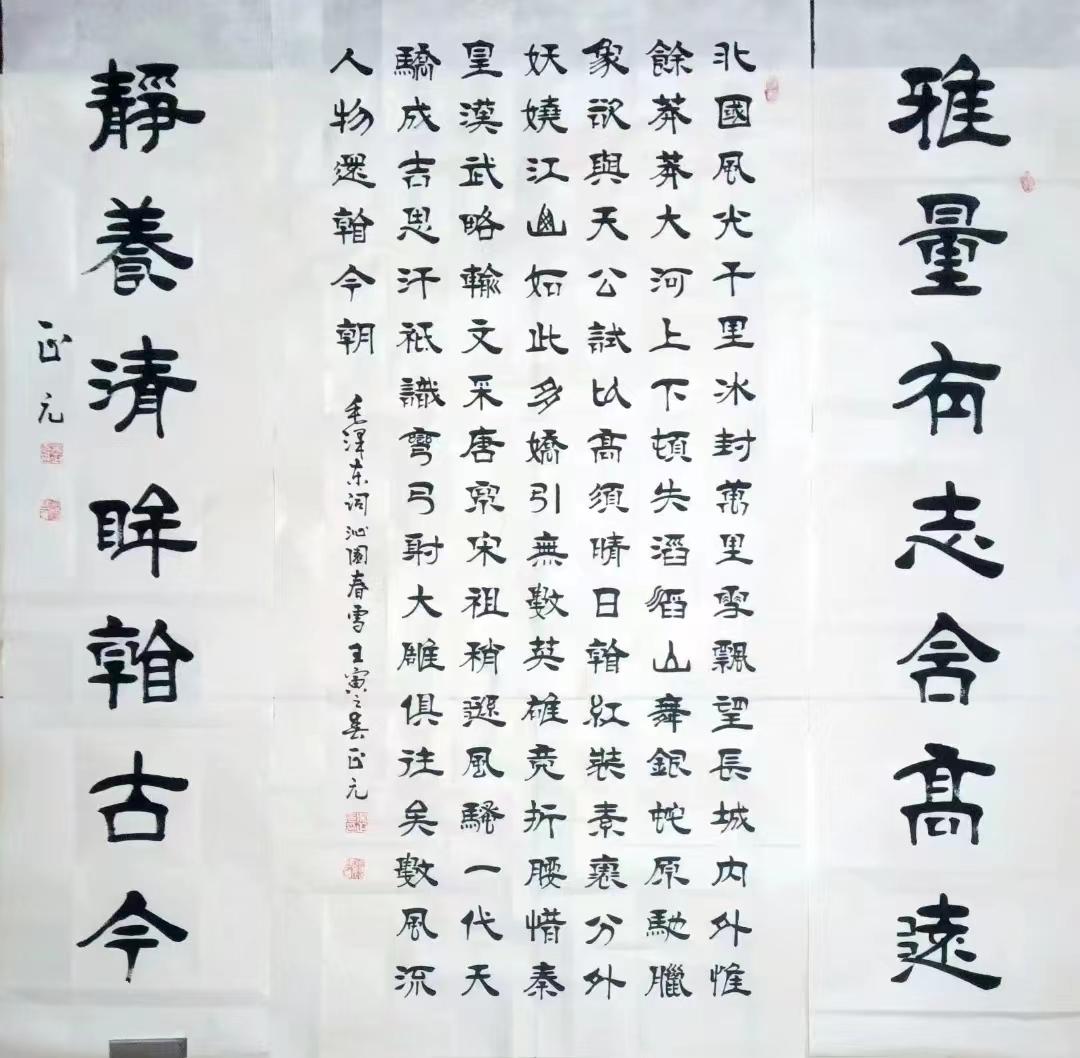 雅量有志含高遠
北國風光千里冰封萬里雪飄望長城內外惟
餘莽莽大河上下頓失滔滔山舞銀蛇原馳臘
象欲與天公試比高須晴日看紅裝素裹分外
妖嬈江山如此多嬌引無數英雄竞折腰惜秦
皇漢武略輸文采唐宗宋祖稍遜風騷一代天
驕成吉思汗祗識彎弓射大雕俱往矣數風流
人物還看今朝 毛澤东词沁園春雪 壬寅之吴正元
靜養清眸看古今
正元